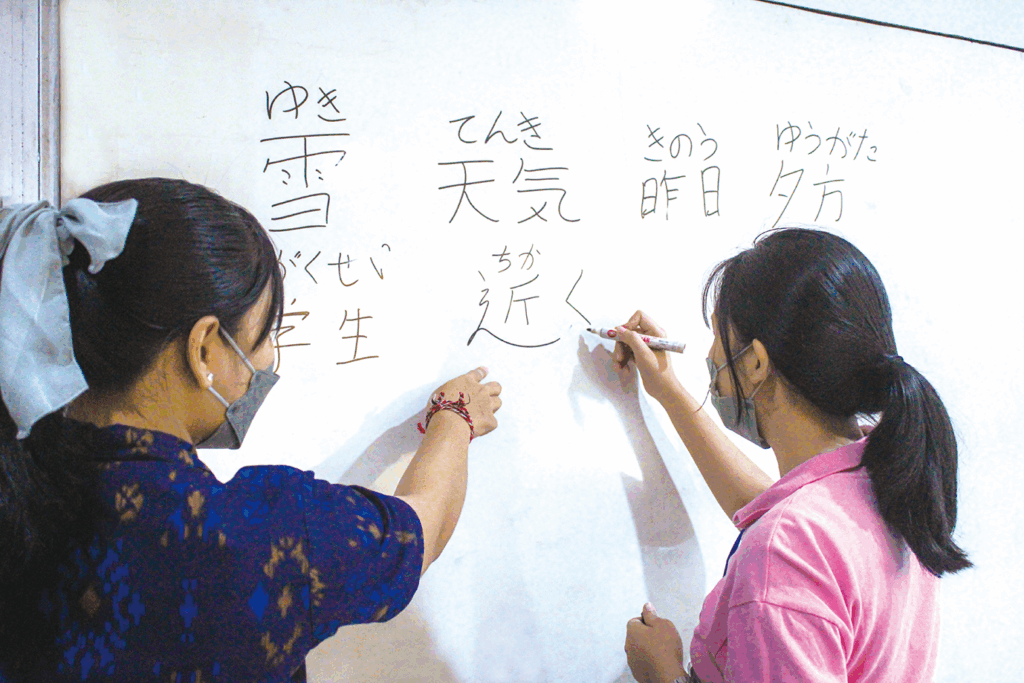 ゆき てんき きのう ゆうがた
雪 天気 昨日 夕方
がくせい ちか
学生 近く